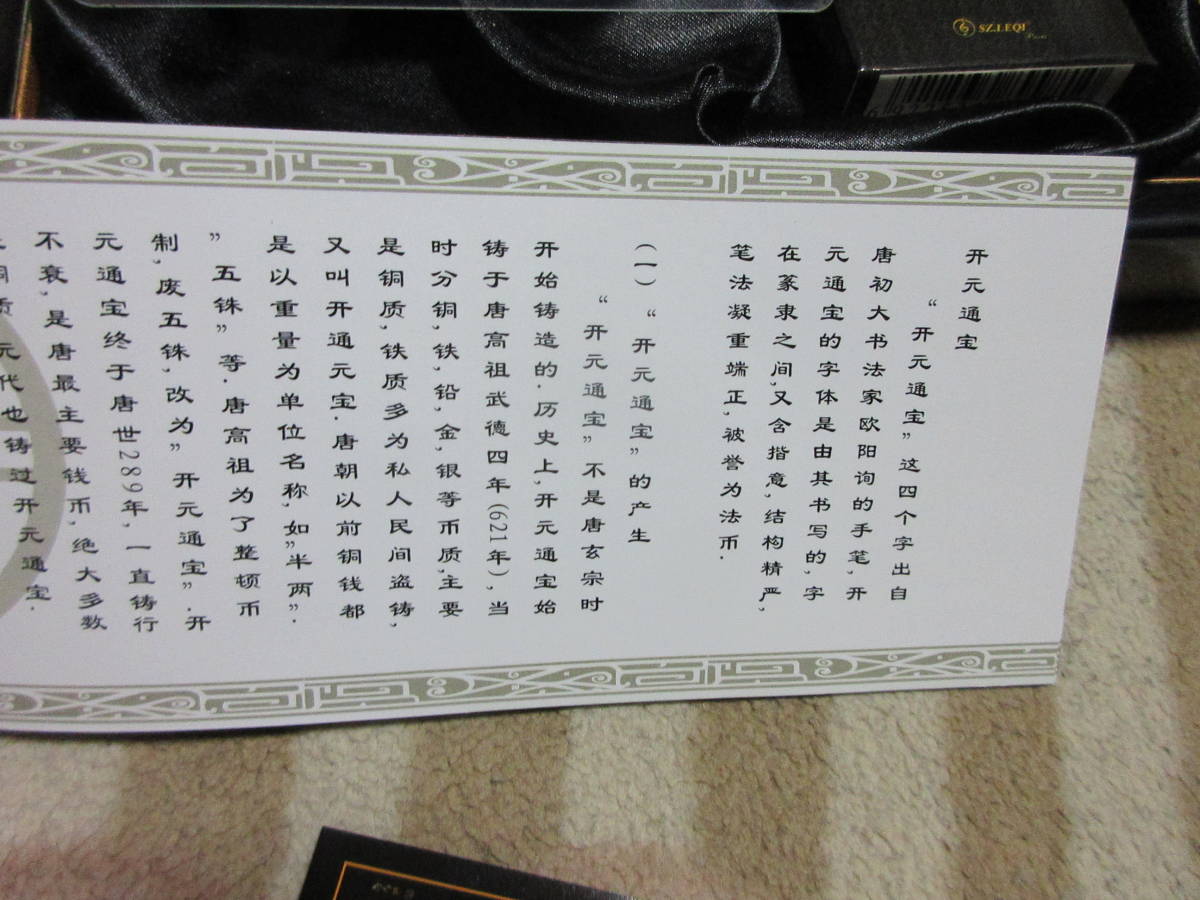 开元通宝
“开元通宝”这四个字出自
唐初大书法家欧阳询的手笔,开
元通宝的字体是由其书写的,字
在篆隶之间,又含揩意,结构精严,
笔法凝重端正,被誉为法币.
(一)“开元通宝”的产生
“开元通宝”不是唐玄宗时
开始铸造的.历史上,开元通宝始
铸于唐高祖武德四年(621年),当
时分铜,铁,铅,金,银等币质,主要
是铜质,铁质多为私人民间盗铸,
又叫开通元宝.唐朝以前铜钱都
是以重量为单位名称,如”半两”.
”五铢”等.唐高祖为了整顿币
制,废五铢,改为”开元通宝”.开
元通宝终于唐世289年,一直铸行
不衰,是唐最主要钱币,绝大多数
元代也铸过开元通宝.
SZ.LEQI